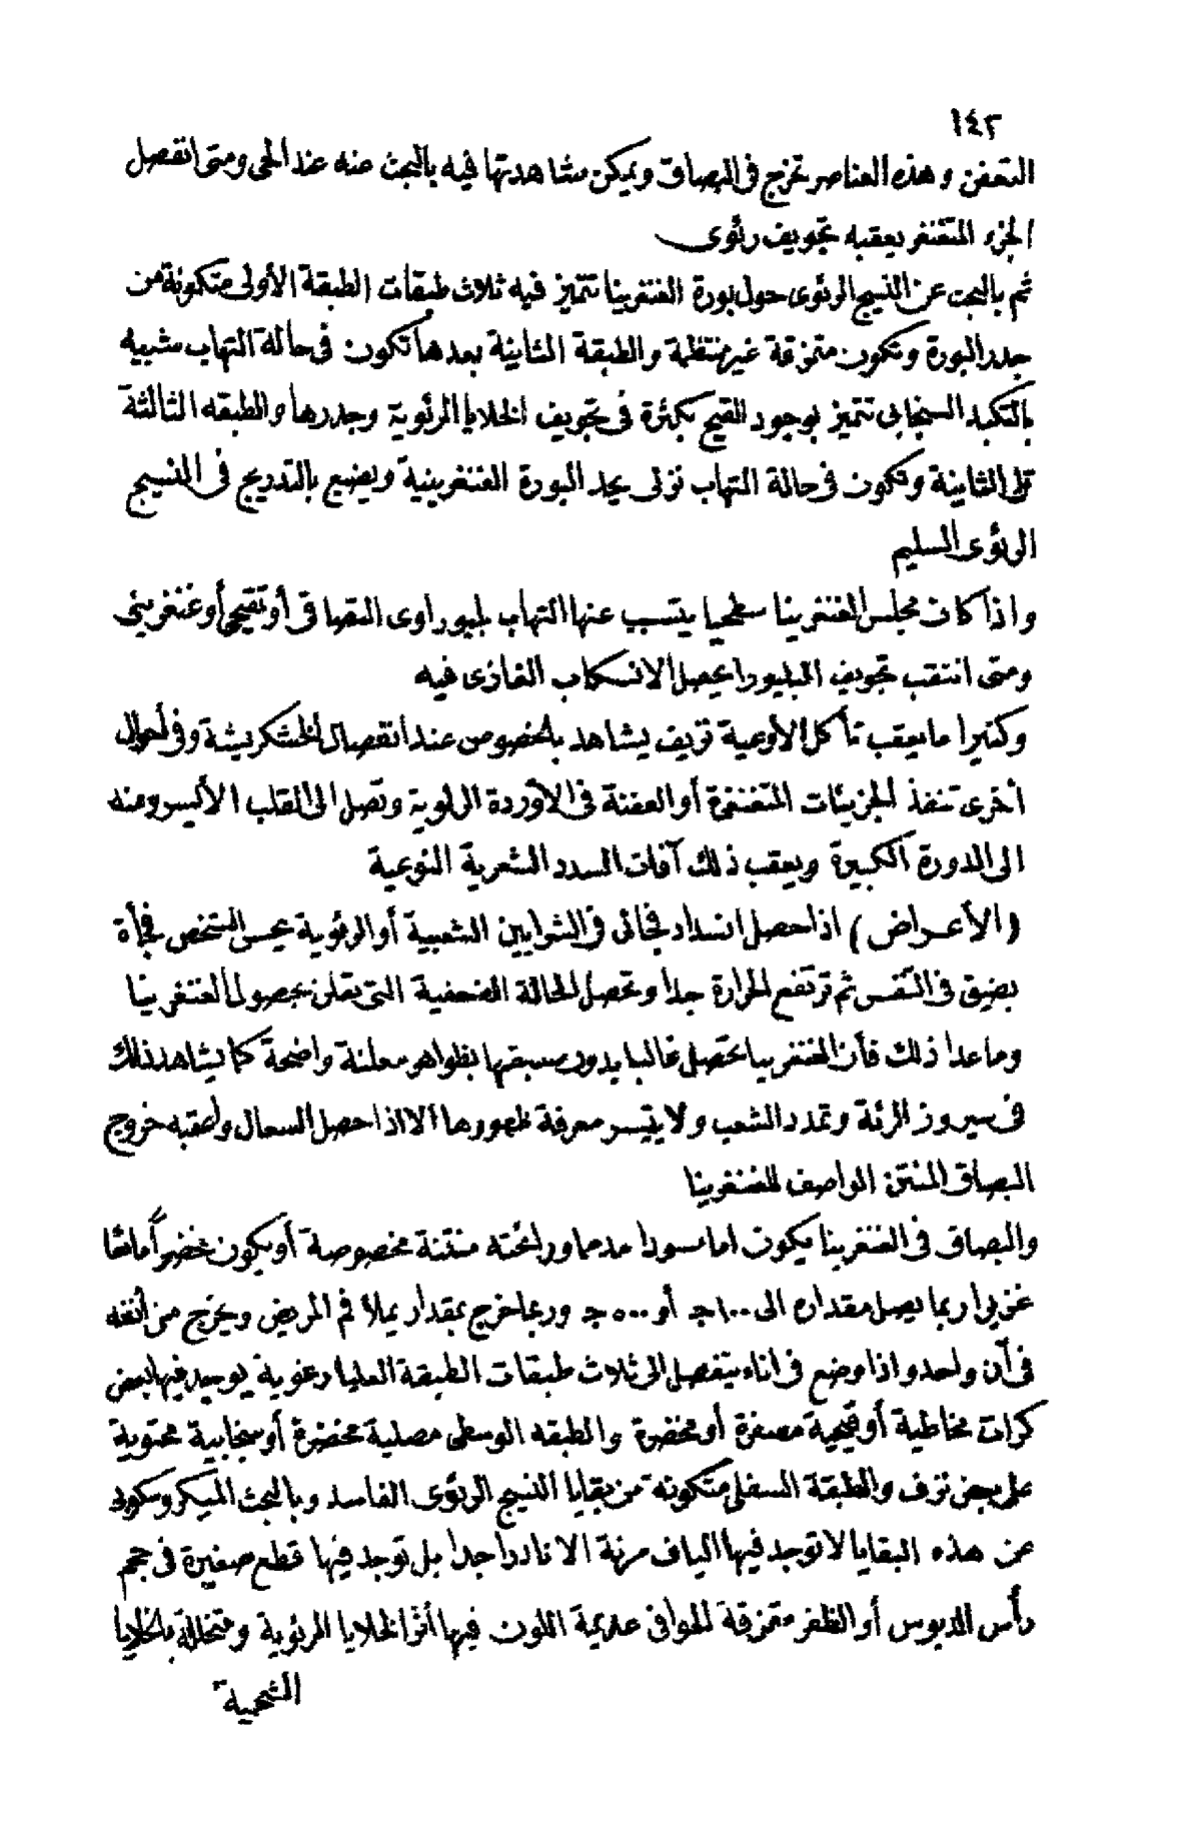 ١٤٢
التعفن وهذه العناصر تخرج فى البصاق ويمكن مشاهدتها فيه بالبحث عنه عند الحى ومتى انفصل
الجزء المتغنغر يعقبه تجويف رئوى
ثم بالبحث عن النسيج الرئوى حول بورة الغنغرينا تتميز فيه ثلاث طبقات الطبقة الأولى متكونة من
جدر البورة وتكون متمزقة غير منتظمة والطبقة الثانية بعدها تكون فى حالة التهاب شبيه
بالتكبد السنجابى تتميز بوجود القيح بكثرة فى تجويف الخلايا الرئوية وجدرها والطبقه الثالثة
تلى الثانية وتكون فى حالة التهاب نزلى يحد البورة الغنغرينية ويضيع بالتدريج فى النسيج
الرئوى السليم
واذا كان مجلس الغنغرينا سطحيا يتسبب عنها التهاب بليوراوى التصاقى أو تقيحى أو غنغرينى
ومتى انثقب تجويف البليورا يحصل الانسكاب الغازى فيه
وكثيرا ما يعقب تأكل الأوعية نزيف يشاهد بالخصوص عند انفصال الخشكريشة وفى أحوال
أخرى تنفذ الجزيئات المتغنغرة أو العفنة فى الأوردة الرئوية وتصل الى القلب الأيسر ومنه
الى الدورة الكبيرة ويعقب ذلك آفات السدد الشعرية النوعية
(الأعراض) اذا حصل انسداد فجائى فى الشرايين الشعبية أو الرئوية يحس الشخص فجأة
بضيق فى النفس ثم ترتفع الحرارة جدا وتحصل الحالة الضعفية التى تعلن بحصول الغنغرينا
وما عدا ذلك فأن الغنغرينا تحصل غالبا بدون سبقها بظواهر معلنة واضحة كما يشاهد ذلك
فى سيروز الرئة وتمدد الشعب ولا يتيسر معرفة ظهورها الا اذا حصل السعال ولعقبه خروج
البصاق المنتن الواصف للغنغرينا
والبصاق فى الغنغرينا يكون اما مسودا مدمما ورائحته منتنة مخصوصة أو يكون مخضرا مائعا
غزيرا ربما يصل مقداره الى ١٠٠ جـ أو ٥٠٠ جـ وربما خرج بمقدار يملأ فم المريض ويخرج من أنفه
فى آن واحد واذا وضع فى اناء ينفصل الى ثلاث طبقات الطبقة العليا رغوية يوجد فيها بعض
كرات مخاطية أو قيحية مصفرة أو مخضرة والطبقه الوسطى مصلية مخضرة أو سنجابية محتوية
على بعض نزف والطبقة السفلى متكونة من بقايا النسيج الرئوى الفاسد وبالبحث الميكروسكوبى
عن هذه البقايا لا توجد فيها الياف مرنة الا نادرا جدا بل توجد فيها قطع صغيرة فى حجم
رأس الدبوس أو الظفر متمزقة الحوافى عديمة اللون فيها أثر الخلايا الرئوية ومتخللة بالخلايا
الشحمية